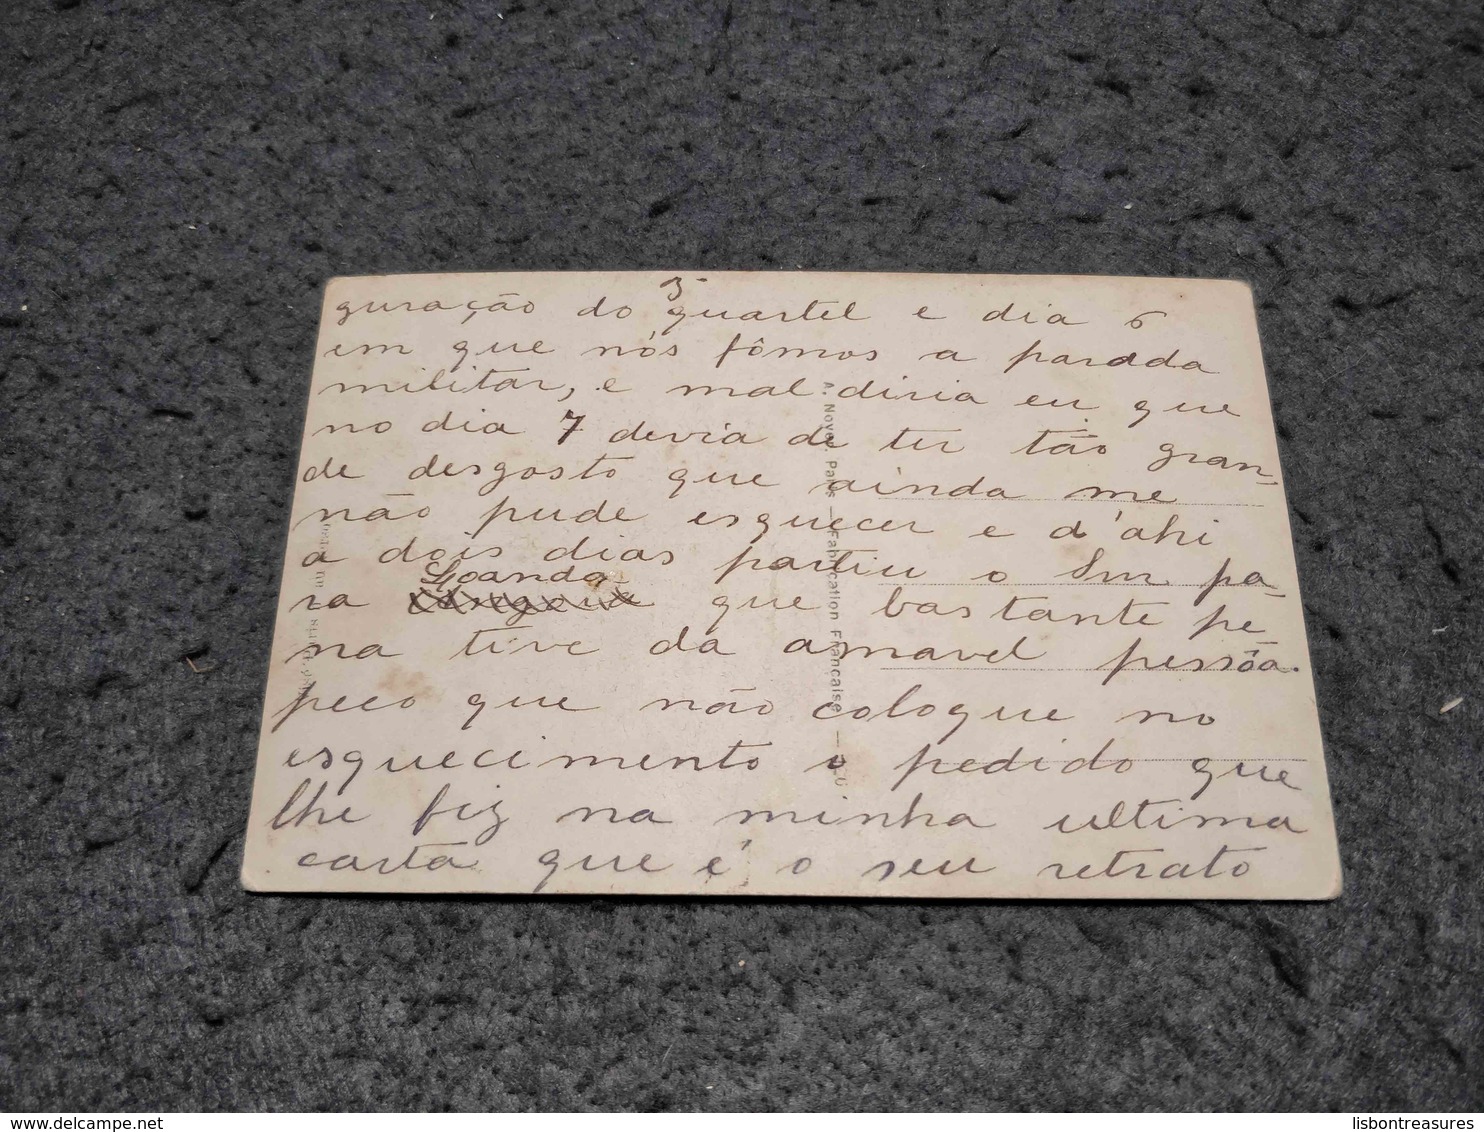 3
guração do quartel e dia 6
em que nós fômos a parada
militar, e mal diria eu que
no dia 7 devia de ter tão gran-
de desgosto que ainda me
não pude esquecer e d'ahi
a dois dias partiu o Snr pa-
Loanda
ra que bastante pe-
na tive da amavel pessôa.
peço que não cologue no
esquecimento o pedido que
lhe fiz na minha ultima
carta que é o seu retrato
A. Noyer, Paris — Fabrication Française —
lisbontreasures